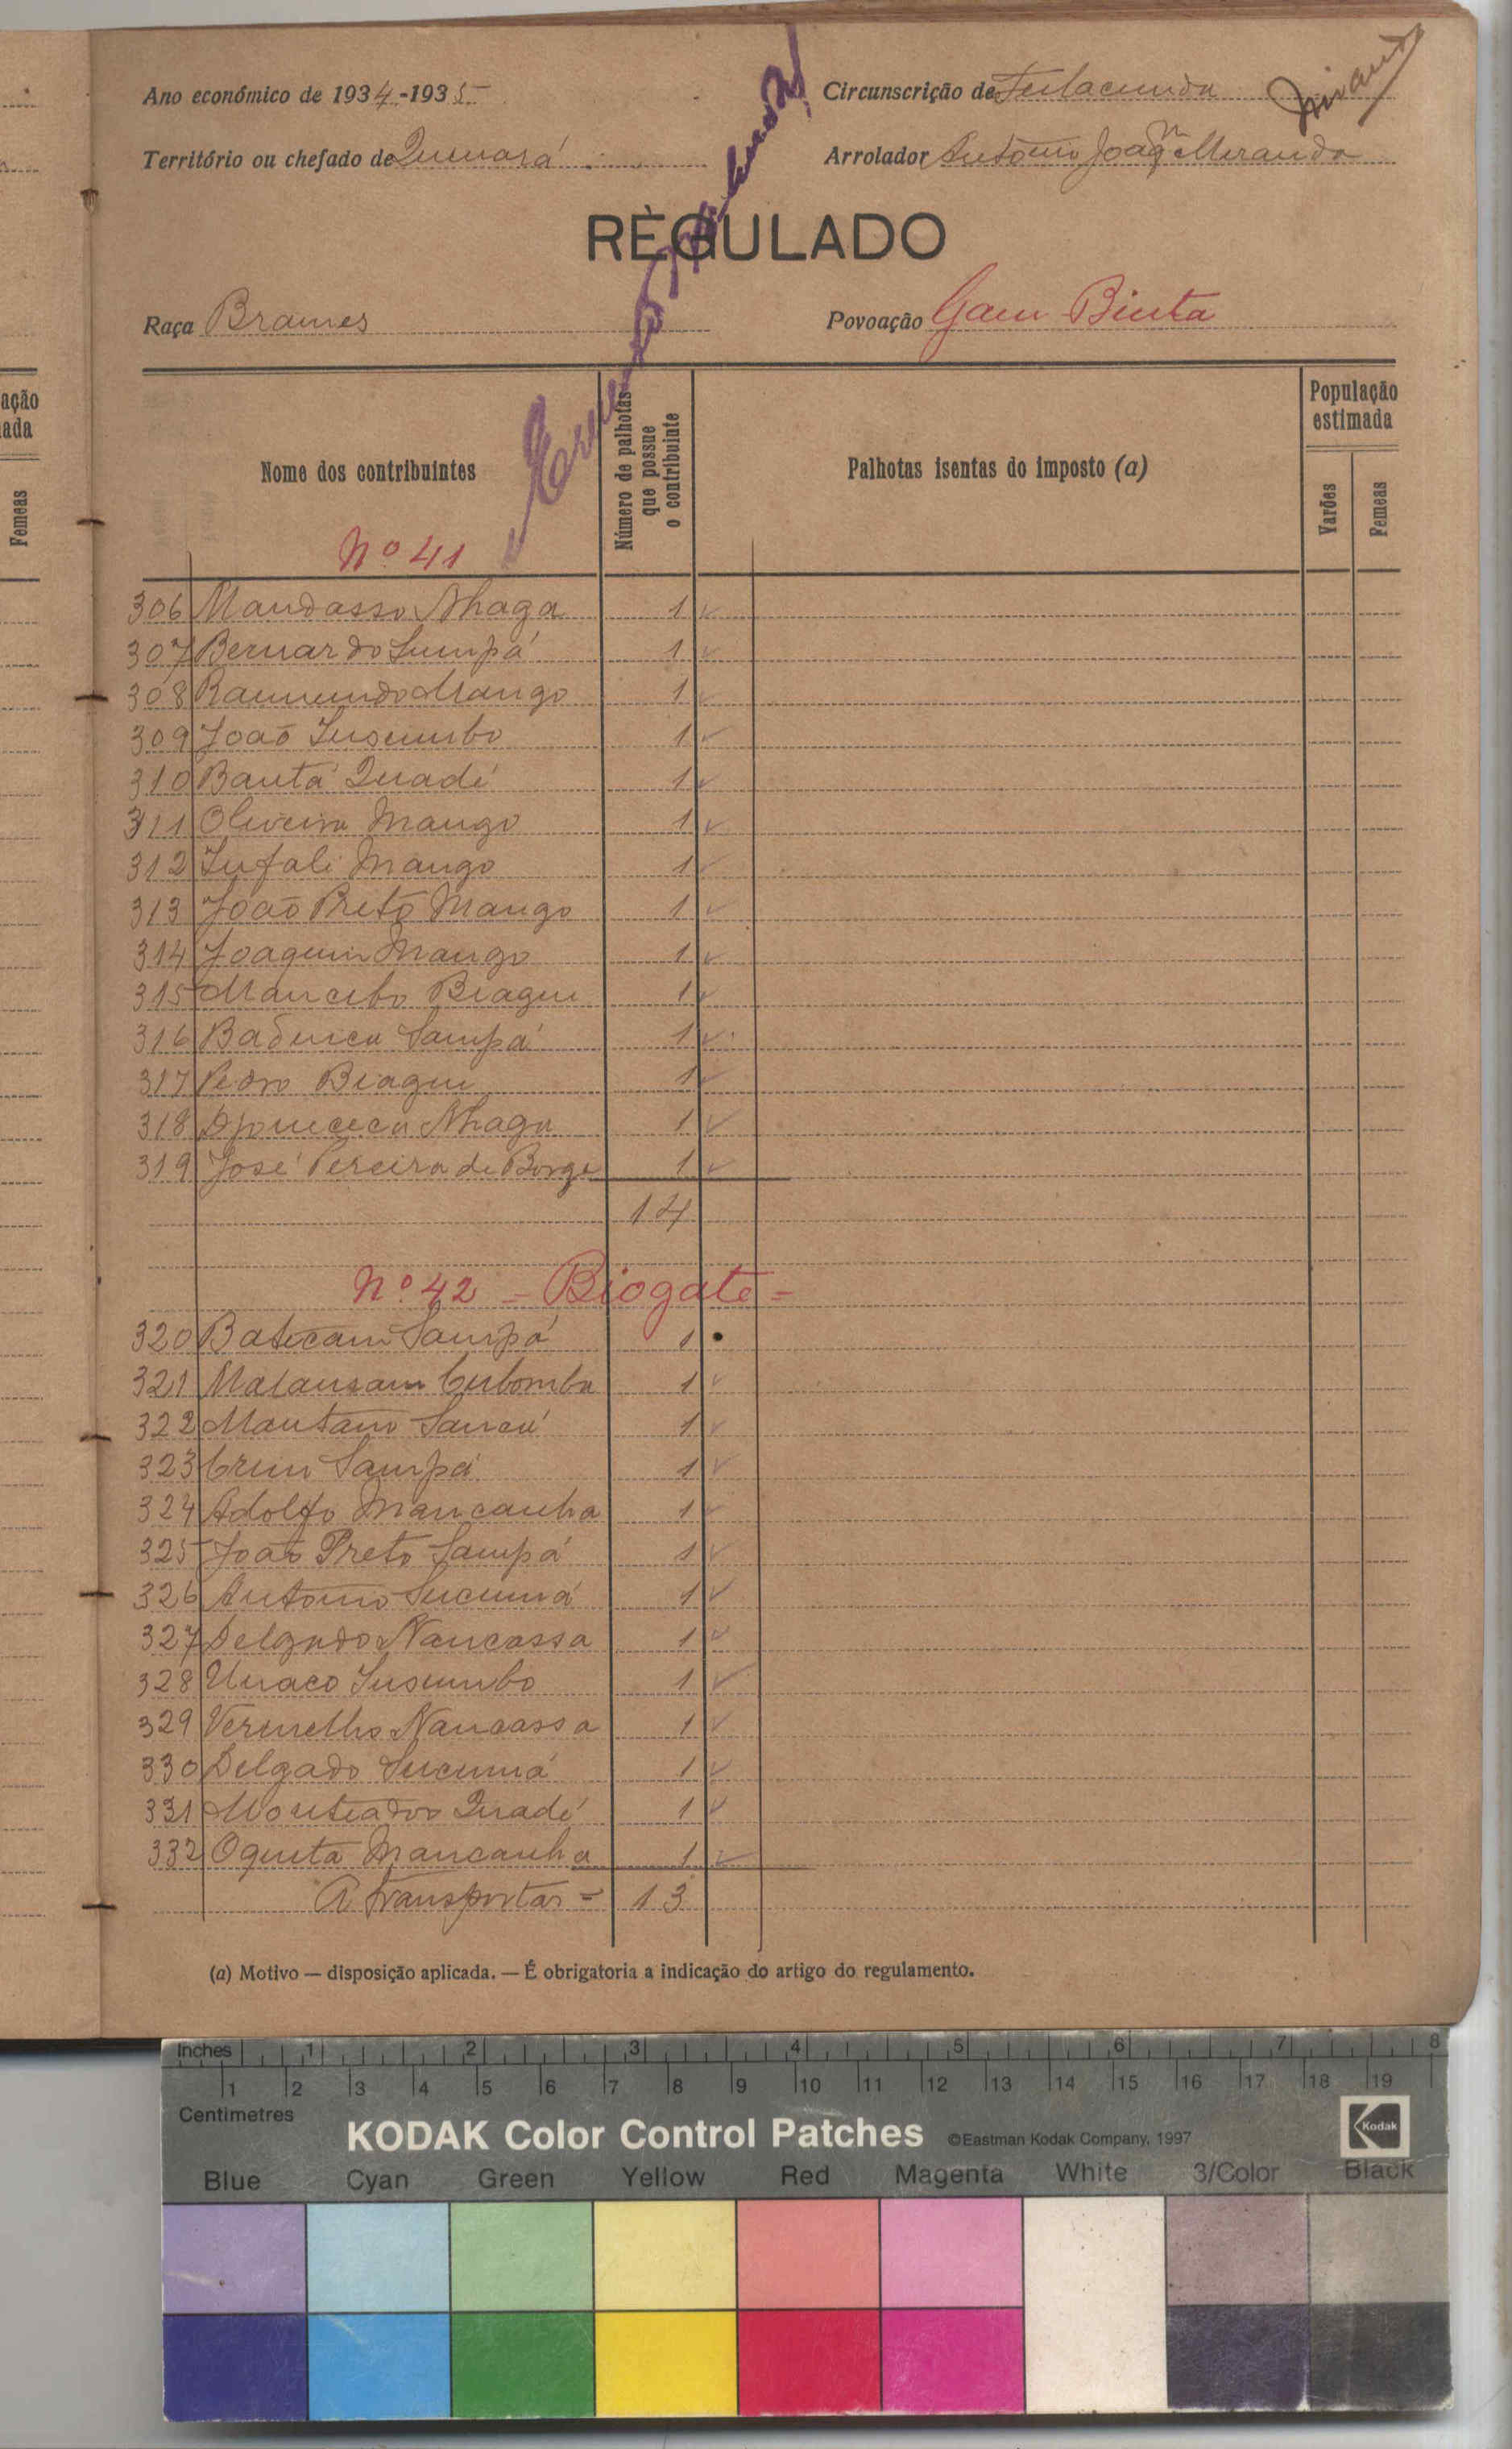 Ano económico de 1934-1935
Circunscrição de Fulacunda
Território ou chefado de Quinará
Arrolador António João Miranda
RÈGULADO
Raça Brames
Povoação Gam Binta
Nome dos contribuintes
Número de palhotas que possue o contribuinte
Palhotas isentas do imposto (a)
População estimada
Varões
Femeas
ação
ada
Femeas
Nº 41
306 Mandasso Nhaga 1
307 Bernardo Sumpá 1
308 Raimundo Mango 1
309 João Insumbo 1
310 Bantá Quadé 1
311 Oliveira Mango 1
312 Infali Mango 1
313 João Preto Mango 1
314 Joaquim Mango 1
315 Mancebo Biague 1
316 Sampá 1
317 Pedro Biague 1
318 Nhaga 1
319 José Pereira de Borge 1
14
Nº 42 = Biogate =
320 Batican Sampá 1
321 Malansam 1
322 Mantano 1
323 Sampá 1
324 Adolfo Mancanha 1
325 João Preto Sampá 1
326 António Sucumá 1
327 Delgado Nancassa 1
328 Unaco Insumbo 1
329 Vermelho Nancassa 1
330 Delgado Sucumá 1
331 Monteador Quadé 1
332 Oquita Mancanha 1
A transportar = 13
(a) Motivo — disposição aplicada. — É obrigatoria a indicação do artigo do regulamento.
Inches 1 2 3 4 5 6 7 8
1 2 3 4 5 6 7 8 9 10 11 12 13 14 15 16 17 18 19
Centimetres
KODAK Color Control Patches ©Eastman Kodak Company, 1997 Kodak
Blue Cyan Green Yellow Red Magenta White 3/Color Black